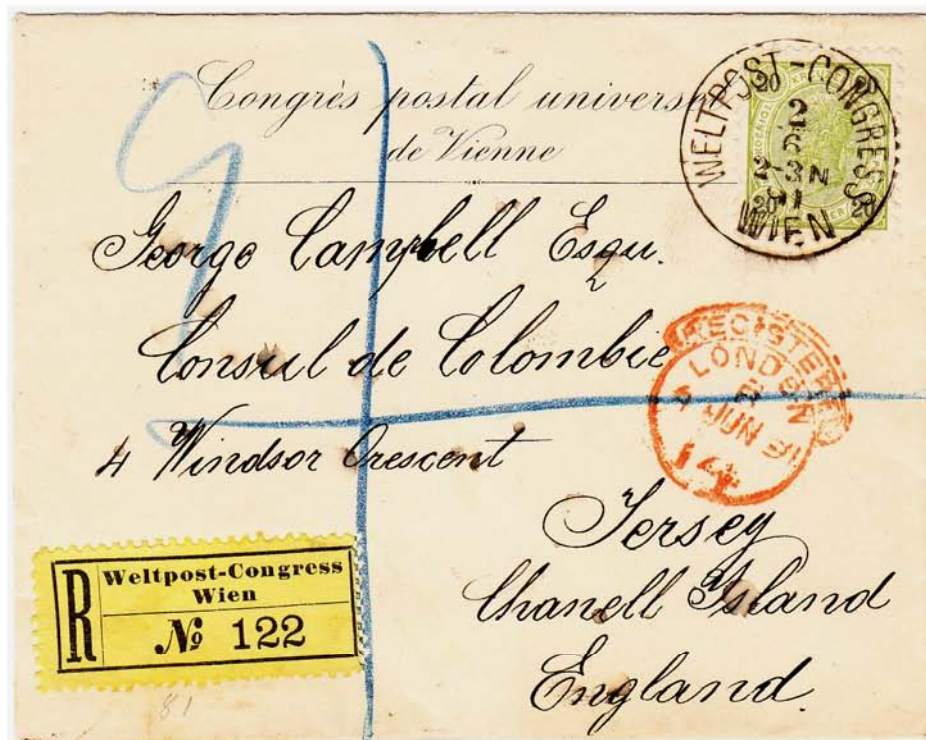 Congrès postal univers
de Vienne
WELTPOST-CONGRESS
20
20
20
2
6
2-3N
91
WIEN
George Campbell Esqu.
Consul de Colombie
REGISTERED
LONDON
JUN 91
4 Windsor Crescent
Jersey
Chanell Island
England.
R
Weltpost-Congress
Wien
№ 122
81